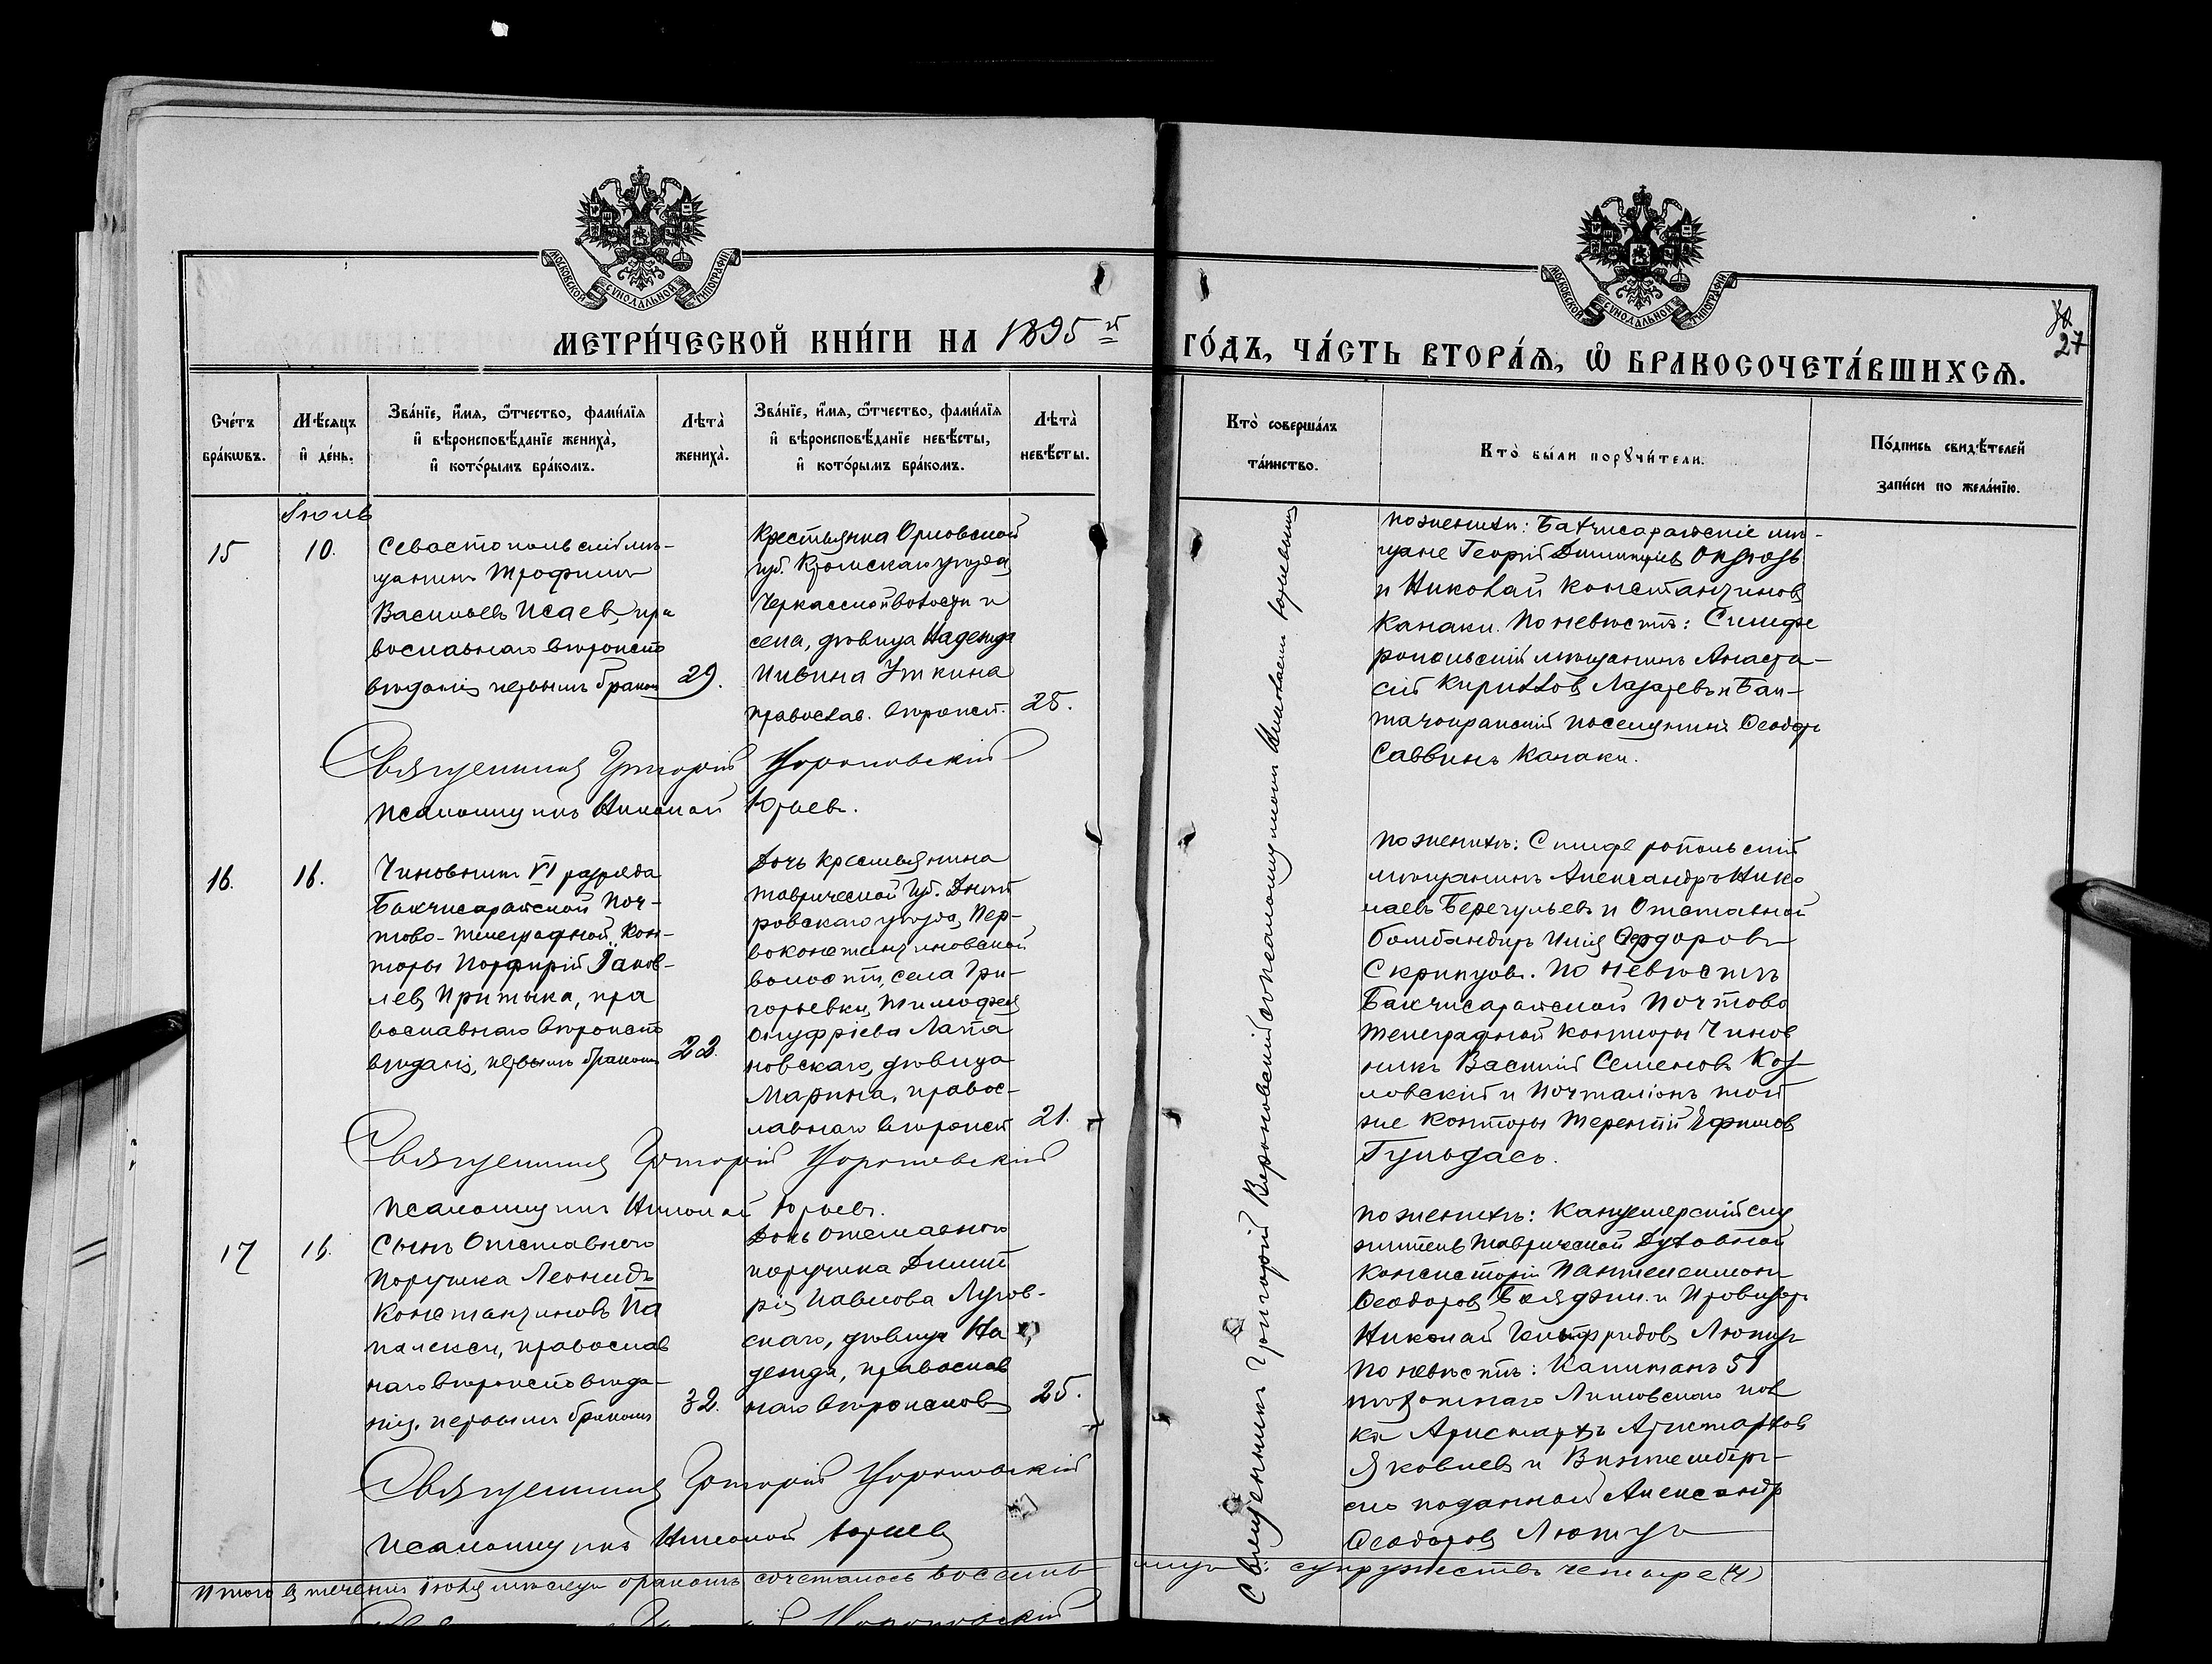 МОСКОВСКОЙ СѴНОДАЛЬНОЙ ТИПОГРАФІИ
МОСКОВСКОЙ СѴНОДАЛЬНОЙ ТИПОГРАФІИ
МЕТРИ́ЧЕСКОЙ КНИ́ГИ НА 1895 й ГО́ДЪ, ЧА́СТЬ ВТОРА́Ѧ, Ѡ҆ БРАКОСОЧЕТА́ВШИХСѦ.
27
Сче́тъ бра́кѡвъ.
Мѣ́сяцъ и҆ де́нь.
Зва́нїе, и҆́мя, ѻ҆́тчество, фами́лїя и҆ вѣроисповѣ́данїе жениха̀, и҆ кото́рымъ бра́комъ.
Лѣта̀ жениха̀.
Зва́нїе, и҆́мя, ѻ҆́тчество, фами́лїя и҆ вѣроисповѣ́данїе невѣ́сты, и҆ кото́рымъ бра́комъ.
Лѣта̀ невѣ́сты.
Кто̀ соверша́лъ та́инство.
Кто̀ бы́ли порꙋчи́тели.
По́дпись свидѣ́телей за́писи по жела́нїю.
Іюль
15
10.
Севастопольскій мѣ-
щанинъ Трофимъ
Васильевъ Исаевъ, пра
вославнаго вѣроиспо
вѣданія первымъ бракомъ
29.
Крестьянка Орловской
губ. Кромскаго уѣзда,
Черкасской волости и
села, дѣвица Надежда
Ивина Уткина
православ. вѣроисп.
25.
по женихѣ: Бахчисарайскіе мѣ-
щане Георгій Димитріевъ
и Николай Константиновъ
Канаки. По невѣстѣ: Симфе
ропольскій мѣщанинъ Анаста-
сій Кирилловъ Лазаревъ и
поселянинъ Ѳеодоръ
Саввинъ Канаки.
Священникъ Григорій Короповскій
Псаломщикъ Николай Юрьевъ.
16.
16.
Чиновникъ VI разряда
Бахчисарайской Поч-
тово-телеграфной Кон-
торы Порфирій Іаков-
левъ Притыка, пра
вославнаго вѣроиспо
вѣданія, первымъ бракомъ
22.
Дочь крестьянина
Таврической Губ. Днѣп
ровскаго уѣзда, Пер-
воконстантиновской
волости, села Гри-
горьевки, Тимофея
Онуфріева Лата
новскаго, дѣвица
Марина, правос-
лавнаго вѣроисп
21.
по женихѣ: Симферопольскій
мѣщанинъ Александръ Нико
лаевъ Берегульевъ и Отставной
бомбандиръ Илія Ѳедоровъ
Скрипцовъ. По невѣстѣ
Бахчисарайской Почтово
Телеграфной Конторы Чинов
никъ Василій Семеновъ Коз-
ловскій и Почталіонъ той
же Конторы Терентій Ефимовъ
Гульдасъ.
Священникъ Григорій Короповскій
Псаломщикъ Николай Юрьевъ.
17
16.
Сынъ Отставнаго
Поручика Леонидъ
Константиновъ Па
палекси, православ
наго вѣроисповѣда-
нія, первымъ бракомъ
32.
Дочь отставнаго
поручика Димит
рія Павлова Лугов-
скаго, дѣвица На
дежда, православ
наго вѣроисповѣ
25.
по женихѣ: Канцелярскій слу
житель Таврической Духовной
Консисторіи Пантелеимонъ
Ѳеодоровъ Бояджи. и Провизоръ
Николай Готфридовъ Лютцъ
По невѣстѣ: Капитанъ 51
пѣхотнаго Литовскаго пол
ка Аристархъ Аристарховъ
Яковлевъ и Виртембер-
скій подданный Александръ
Ѳеодоровъ Лютцъ
Священникъ Григорій Короповскій
Псаломщикъ Николай Юрьевъ
Священникъ Григорій Короповскій съ псаломщикомъ Николаемъ Юрьевымъ
Итого въ теченіи Іюля мѣсяца бракомъ сочеталось восемь лицъ: супружествъ четыре (4)